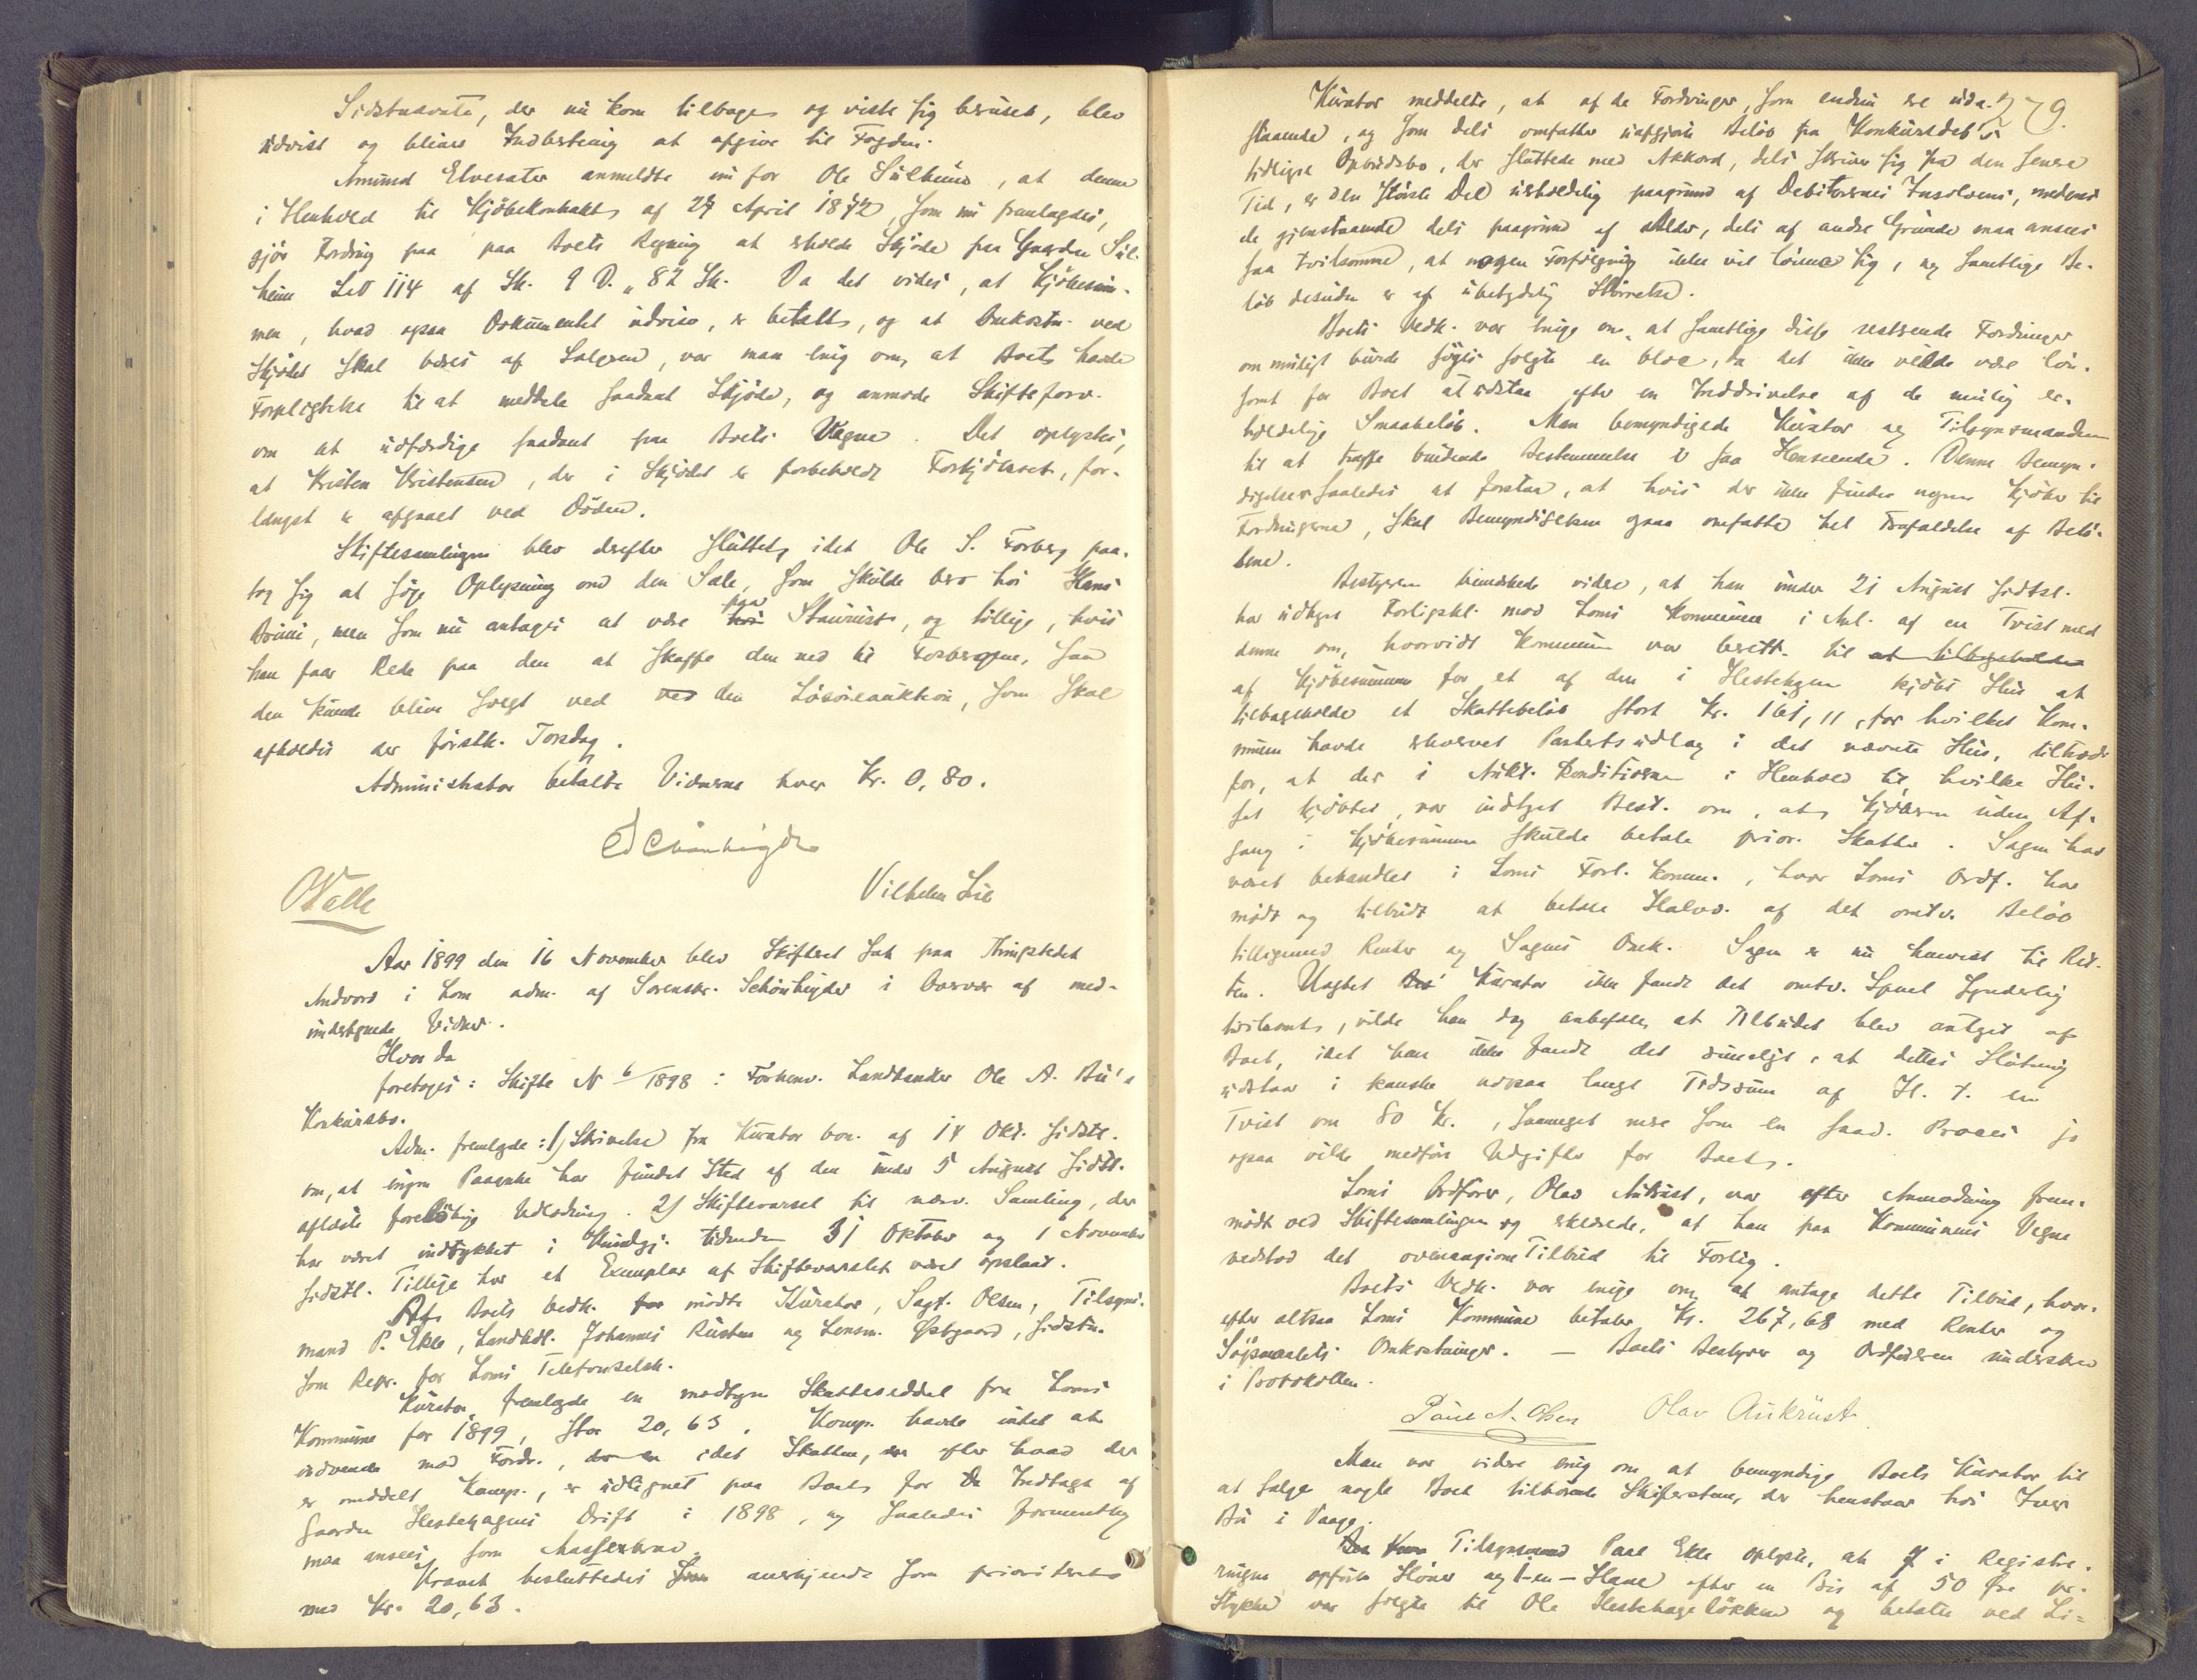 Sidstnævnte, der nu kom tilbage og viste sig beruset, blev
udvist og bliver Indberetning at afgive til Fogden.
Amund Elvesæter anmeldte nu for Ole Sulheim, at denne
i Henhold til Kjøbekontrakt af 24 April 1872, som nu fremlagdes,
gjør Fordring paa paa Boets Regning at erholde Skjøde paa Gaarden Sul-
heim LN 114 af Sk. 9 D. " 82 Sk. Da det vides, at Kjøbesum-
men, hvad ogsaa Dokumentet udviser, er betalt, og at Omkostn. ved
Skjødet skal bæres af Sælgeren, var man enig om, at Boet havde
Forpligtelse til at meddele saadant Skjøde, og anmode Skifteforv.
om at udfærdige saadant paa Boets Vegne. Det oplystes,
at Kristen Kristensen, der i Skjødet er forbeholdt Forkjøbsret, for-
længst er afgaaet ved Døden.
Skiftesamlingen blev derefter sluttet, idet Ole S. Forberg paa-
tog sig at søge Oplysning om den Sæle, som skulde bero hos Hans
Brimi, men som nu antages at være hos paa Staurust, og tillige, hvis
han faar Rede paa den at skaffe den ned til Forbergene, saa
den kunde blive solgt ved ved den Løsøreauktion, som skal
afholdes der førstk. Torsdag.
Administrator betalte Vidnerne hver Kr. 0,80.
E Schönheyder
OValle
Vilhelm Lie
Aar 1899 den 16 November blev Skifteret sat paa Thingstedet
Andvord i Lom adm. af Sorenskr. Schönheyder i Overvær af med-
undertegnede Vidner.
Hvor da
foretoges: Skifte N 6/1898: Forhenv. Landhandler Ole A. Bu's
Konkursbo.
Adm. fremlagde: 1) Skrivelse fra Kurator bon. af 14 Okt. sidstl.
om, at ingen Paaanke har fundet Sted af den under 5 August sidstl.
afsluttede foreløbige Udlodning. 2) Skiftevarsel til nærv. Samling, der
har været indrykket i Kundgj. tidende 31 Oktober og 1 November
sidstl. Tillige har et Exemplar af Skiftevarslet været opslaat.
Af Boets Vedk. for mødte Kurator, Sagf. Olsen, Tilsyns-
mand P. Ekle, Landhdl. Johannes Rusten og Lensm. Østgaard, sidstn.
som Repr. for Loms Telefonselsk.
Kurator fremlagde en modtagen Skatteseddel fra Loms
Kommune for 1899, stor 20,63. Komp. havde intet at
indvende mod Fordr., der er idet Skatten, der efter hvad der
er meddelt Komp., er udlignet paa Boet for Indtægt af
Gaarden Hestehagens Drift i 1898, og saaledes formentlig
maa ansees som Massekrav.
Kravet besluttedes som anerkjendt som prioriteret
med Kr. 20,63.
279.
Kurator meddelte, at af de Fordringer, som endnu ere uda-
staaende, og som dels omfatter uafgjorte Beløb fra Konkursdeb's
tidligere Opbudsbo, der sluttede med Akkord, dels skriver sig fra den senere
Tid, er den største Del uerholdelig paagrund af Debitorernes Insolvens, medens
de gjenstaaende dels paagrund af Ælde, dels af andre Grunde maa ansees
saa tvilsomme, at nogen Forfølgning ikke vil lønne sig, og samtlige Be-
løb desuden er af ubetydelig Størrelse.
Boets Vedk. var enige om, at samtlige disse resterende Fordringer
om muligt burde søges solgte en bloc, da det ikke vilde være løn-
somt for Boet at udstaa efter en Inddrivelse af de mulig er-
holdelige Smaabeløb. Man bemyndigede Kurator og Tilsynsmanden
til at træffe bindende Bestemmelse i saa Henseende. Denne Bemyn-
digelse saaledes at forstaa, at hvis der ikke findes nogen Kjøber til
Fordringerne, skal Bemyndigelsen ogsaa omfatte hel Frafaldelse af Belø-
bene.
Bestyreren bemærkede videre, at han under 21 August sidstl.
har udtaget Forligskl. mod Loms Kommune i Anl. af en Tvist med
denne om, hvorvidt Kommunen var berett. til at tilbageholde
af Kjøbesummen for et af den i Hestehagen kjøbt Hus at
tilbageholde et Skattebeløb stort Kr. 161,11, for hvilket Kom-
munen havde erhvervet Panteudlæg i det nævnte Hus, tiltrods
for, at der i Aukt. konditionerne i Henhold til hvilke Hu-
set kjøbtes, var indtaget Best. om, at Kjøberen uden Af-
gang i Kjøbesummen skulde betale prior. Skatter. Sagen har
været behandlet i Loms Forl. komm., hvor Loms Ordf. har
mødt og tilbudt at betale Halvd. af det omtv. Beløb
tilligemed Renter og Sagens Omk. Sagen er nu henvist til Ret-
ten. Uagtet Kurator ikke fandt det omtv. Spml synderlig
tvilsomt, vilde han dog anbefale, at Tilbudet blev antaget af
Boet, idet han ikke fandt det rimeligt, at dettes Slutning
udstaar i kanske ogsaa langt Tidsrum af H. t. en
Tvist om 80 Kr., saameget mere som en saad. Proces jo
ogsaa vilde medføre Udgifter for Boet.
Loms Ordfører, Olav Aukrust, var efter Anmodning frem-
mødt ved Skiftesamlingen og erklærede, at han paa Kommunens Vegne
vedstod det ovenangivne Tilbud til Forlig.
Boets Vedk. var enige om at antage dette Tilbud, hvor-
efter altsaa Loms Kommune betaler Kr. 267,68 med Renter og
Søgsmaalets Omkostninger. — Boets Bestyrer og Ordføreren underskrev
i Protokollen.
Paul N. Olsen Olav Aukrust
Man var videre enig om at bemyndige Boets Kurator til
at sælge nogle Boet tilhørende Skiferstene, der henstaar hos Iver
Bu i Vaage.
Tilsynsmand Paal Ekle oplyste, at 7 i Registre-
ringen opførte Høner og 1 - en - Hane efter en Pris af 50 Øre pr.
Stykke var solgte til Ole Hestehageløkken og betalte ved Li=